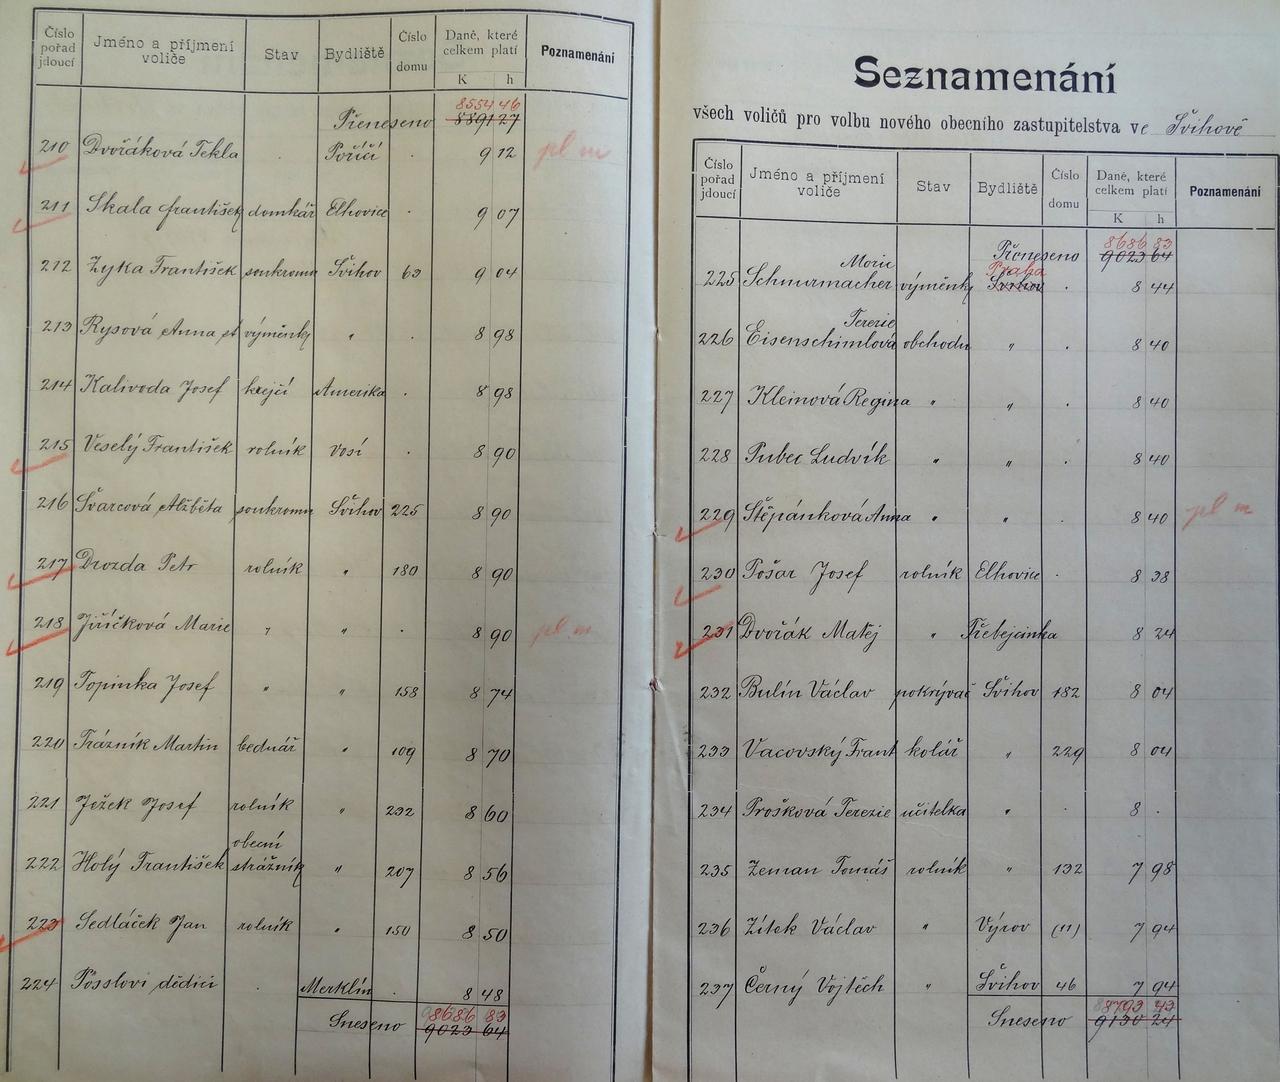 Číslo pořad jdoucí Jméno a příjmení voliče Stav Bydliště Číslo domu Daně, které celkem platí K h Poznamenání
8554 46
Přeneseno 8891 27
210 Dvořáková Tekla . Poříčí . 9 12 pl m
211 Skala František domkář Elhovice . 9 07
212 Zyka František soukromn Švihov 63 9 04
213 Rysová Anna st výměnkř " . 8 98
214 Kalivoda Josef krejčí Amerika . 8 98
215 Veselý František rolník Vosí . 8 90
216 Švarcová Alžběta soukromn Švihov 225 8 90
217 Drozda Petr rolník " 180 8 90
218 Jiříčková Marie " " . 8 90 pl. m
219 Topinka Josef " " 158 8 74
220 Trázník Martin bednář " 109 8 70
221 Ježek Josef rolník " 232 8 60
obecní
222 Holý František strážník " 207 8 56
223 Sedláček Jan rolník " 150 8 50
224 Pösslovi dědici . Merklín . 8 48
8686 83
Sneseno 9023 64
Seznamenání
všech voličů pro volbu nového obecního zastupitelstva ve Švihově
Číslo pořad jdoucí Jméno a příjmení voliče Stav Bydliště Číslo domu Daně, které celkem platí K h Poznamenání
8686 83
Přeneseno 9023 64
Marie Praha
225 Schnurmacher výměnkř Švihov . 8 44
Terezie
226 Eisenschimlová obchodn " . 8 40
227 Kleinová Regina " " 8 40
228 Pubec Ludvík " " . 8 40
229 Štěpánková Anna " " . 8 40 pl m
230 Tošar Josef rolník Elhovice . 8 38
231 Dvořák Matěj " Třebejcinka 8 24
232 Bulín Václav pokrývač Švihov 182 8 04
233 Vacovský Frant kolář " 229 8 04
234 Prošková Terezie učitelka " . 8 .
235 Zeman Tomáš rolník " 132 7 98
236 Zítek Václav " Výrov (11) 7 94
237 Černý Vojtěch " Švihov 46 7 94
8793 43
Sneseno 9130 24